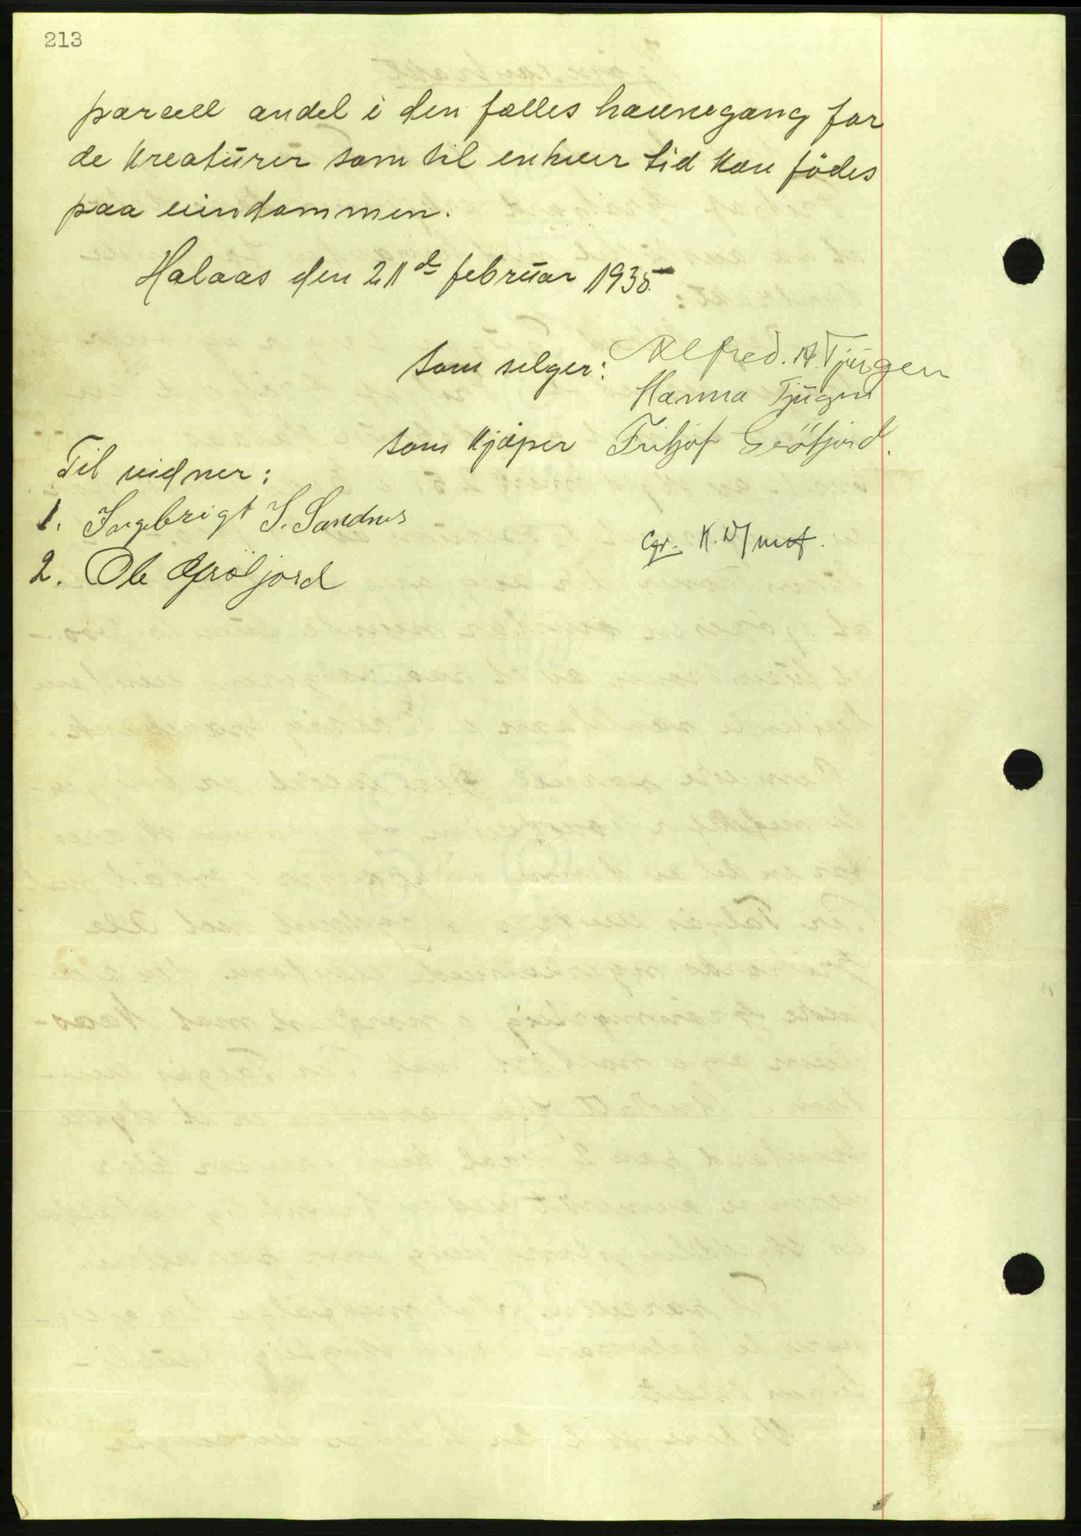 213
parcell andel i den fælles havnegang for
de kreaturer som til enhver tid kan födes
paa eiendommen.
Halaas den 21de februar 1935
Som selger: Alfred. A. Tjugen
Hanna Tjugen
som kjöper Fritjof Gröfjord.
Til vidner:
1. Ingebrigt I. Sandnes
2. Ole Gröfjord